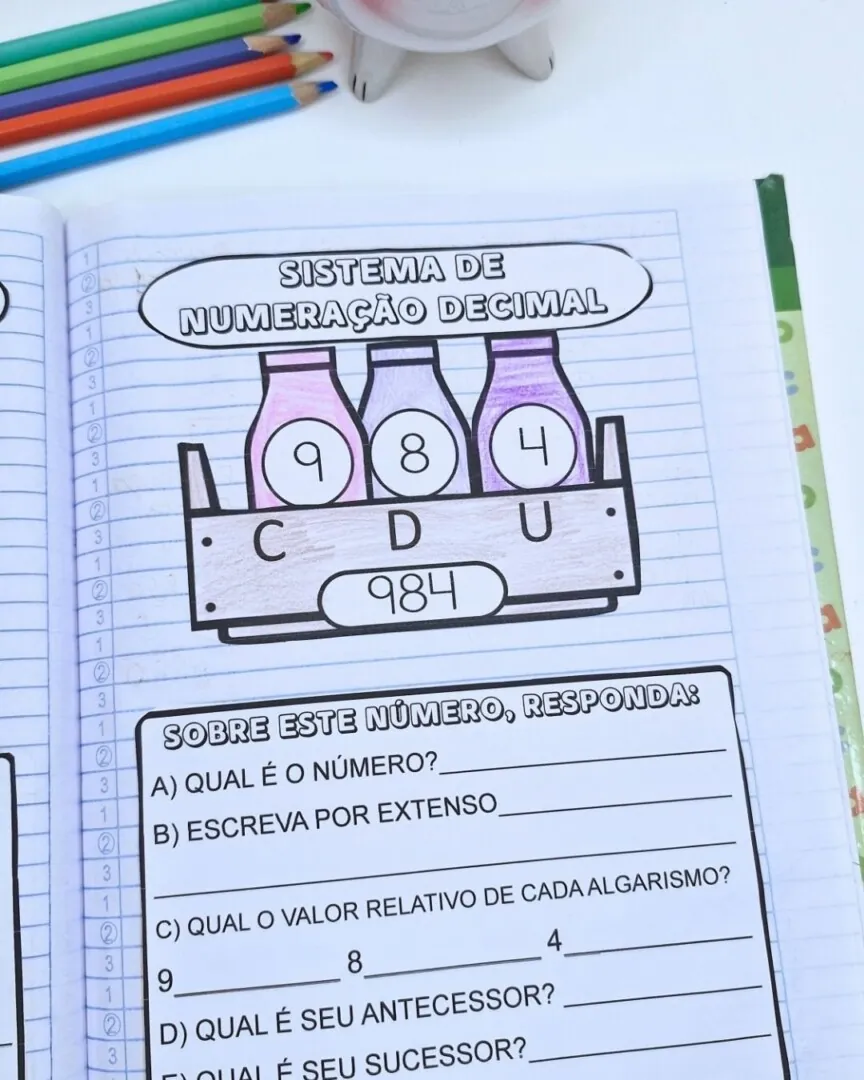 SISTEMA DE
NUMERAÇÃO DECIMAL
9 8 4
C D U
984
SOBRE ESTE NÚMERO, RESPONDA:
A) QUAL É O NÚMERO?
B) ESCREVA POR EXTENSO
C) QUAL O VALOR RELATIVO DE CADA ALGARISMO?
9 8 4
D) QUAL É SEU ANTECESSOR?
E) QUAL É SEU SUCESSOR?
1
2
3
1
2
3
1
2
3
1
2
3
1
2
3
1
2
3
1
2
3
1
2
3
1
2
3
1
2
3